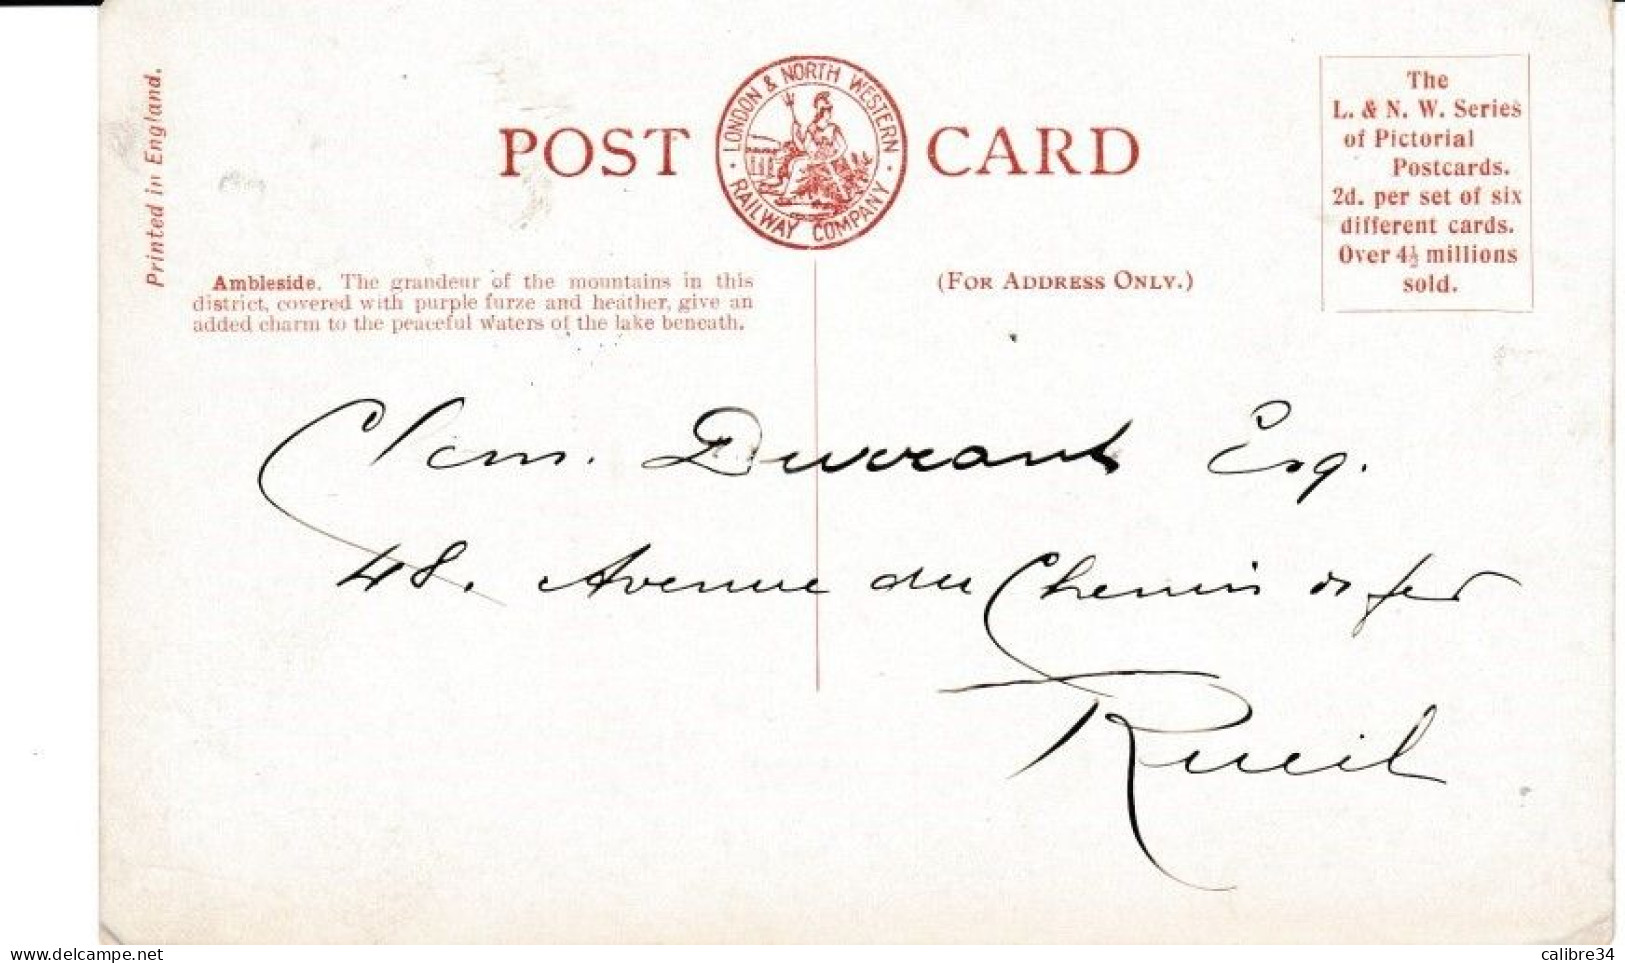 Printed in England.
POST CARD
LONDON & NORTH WESTERN
RAILWAY COMPANY
The
L. & N. W. Series
of Pictorial
Postcards.
2d. per set of six
different cards.
Over 4½ millions
sold.
Ambleside. The grandeur of the mountains in this
district, covered with purple furze and heather, give an
added charm to the peaceful waters of the lake beneath.
(FOR ADDRESS ONLY.)
Clem. Durrant Esq.
48. Avenue du Chemin de fer
Rueil
delcampe.net
calibre34